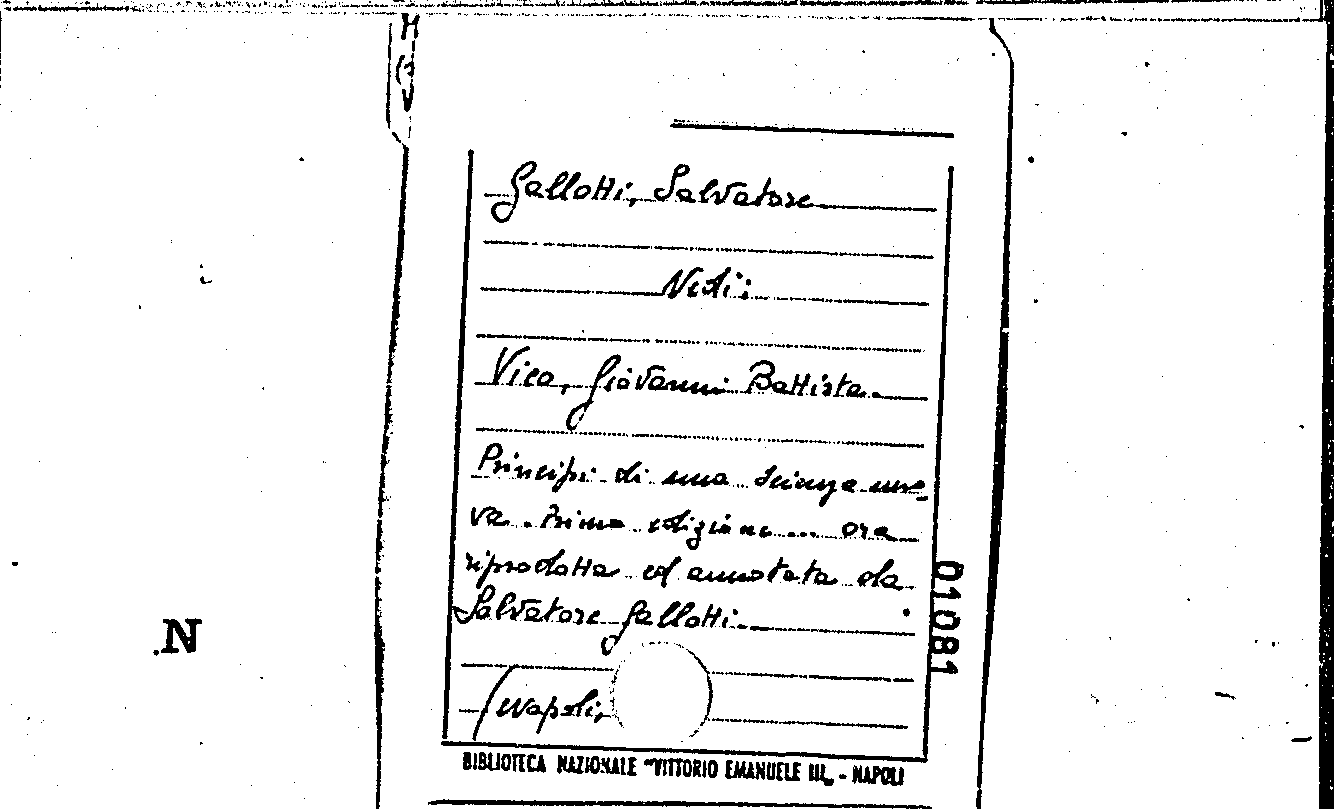 Gallotti, Salvatore
Vedi:
Vico, Giovanni Battista.
Principi di una scienza nuo-
va. Prima edizione... ora
riprodotta ed annotata da
Salvatore Gallotti.
Napoli,
01081
BIBLIOTECA NAZIONALE "VITTORIO EMANUELE III" - NAPOLI
N